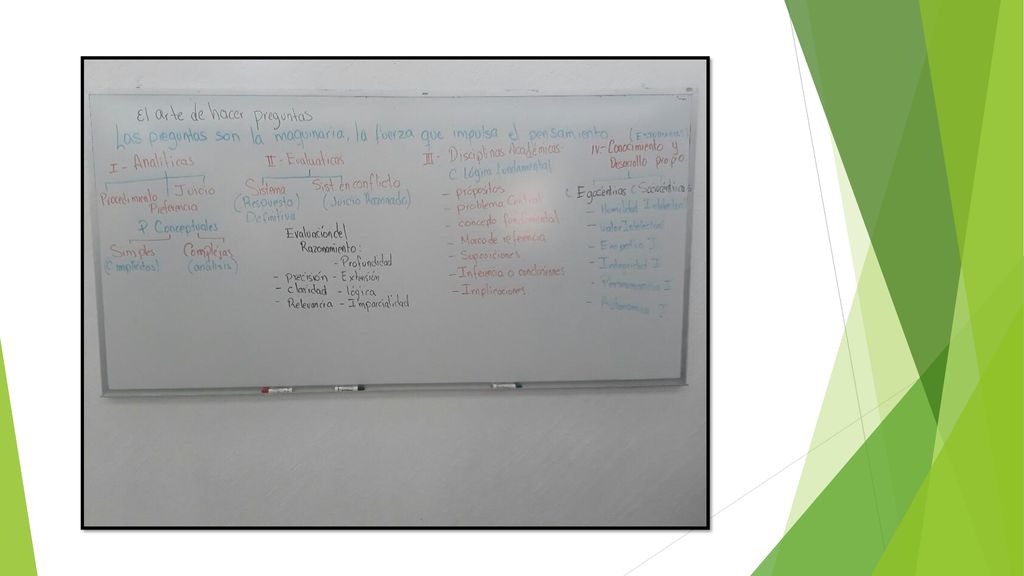 El arte de hacer preguntas
Las preguntas son la maquinaria, la fuerza que impulsa el pensamiento.
I - Analíticas
Procedimiento
Preferencia
Juicio
P. Conceptuales
Simples
Complejas
(análisis)
II - Evaluativas
Sistema
(Respuesta)
Definitiva
Sist. en conflicto
(Juicio Razonado)
Evaluación del
Razonamiento:
- Profundidad
- precisión - Extensión
- claridad - lógica
- Relevancia - Imparcialidad
III - Disciplinas Académicas
C lógica fundamental
- propósitos
- problema central
- concepto fundamental
- Marco de referencia
- Suposiciones
- Inferencia o conclusiones
- Implicaciones
IV - Conocimiento y
Desarrollo propio
Egocéntricas Sociocéntricas
- Humildad Intelectual
- Valor Intelectual
- Empatía I.
- Integridad I
- Perseverancia I
- Autonomía I